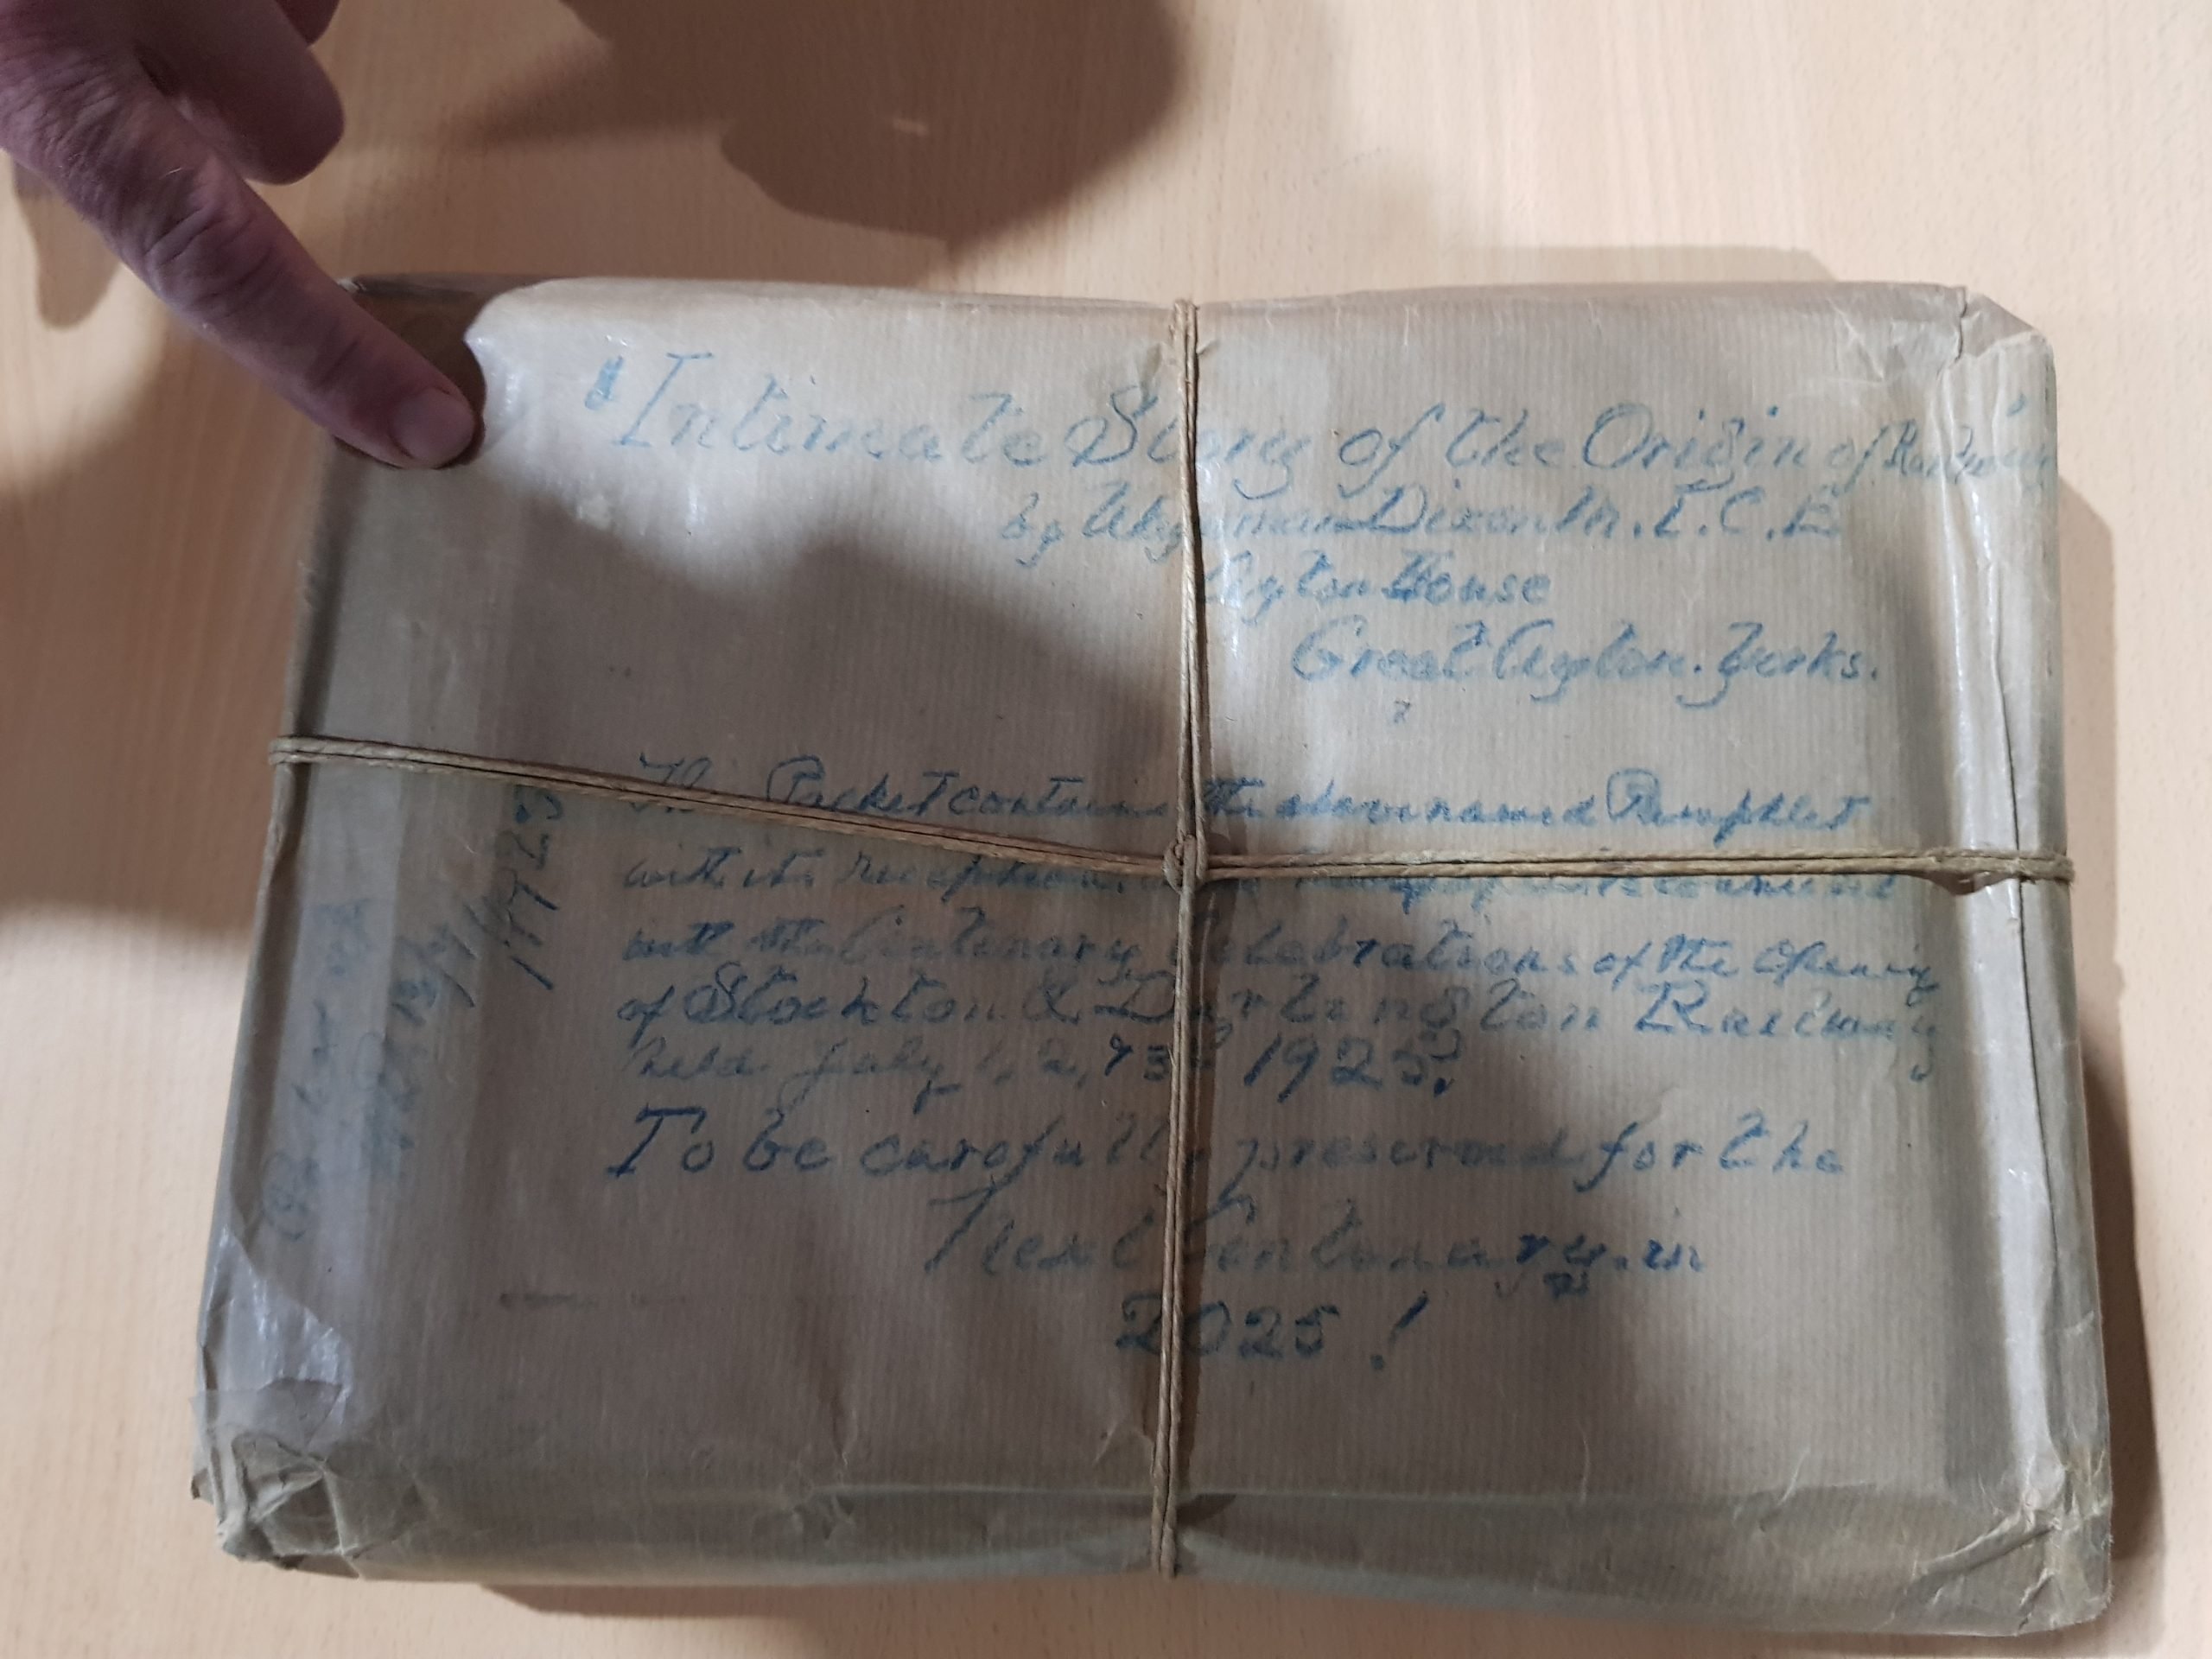 "Intimate Story of the Origin of Railways
by Wayman Dixon M.I.C.E.
Ayton House
Great Ayton. Yorks.
The Packet contains the above named Pamphlet
with its reception
with the Centenary Celebrations of the Opening
of Stockton & Darlington Railway
held July 1, 2, & 3rd 1925.
To be carefully preserved for the
Next Centenary in
2025!
1925